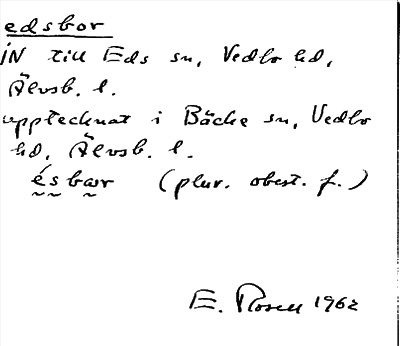 edsbor
iN till Eds sn, Vedbo hd,
Älvsb. l.
upptecknat i Bäcke sn, Vedbo
hd, Älvsb. l.
ésbær (plur. obest. f.)
E. Rosell 1962